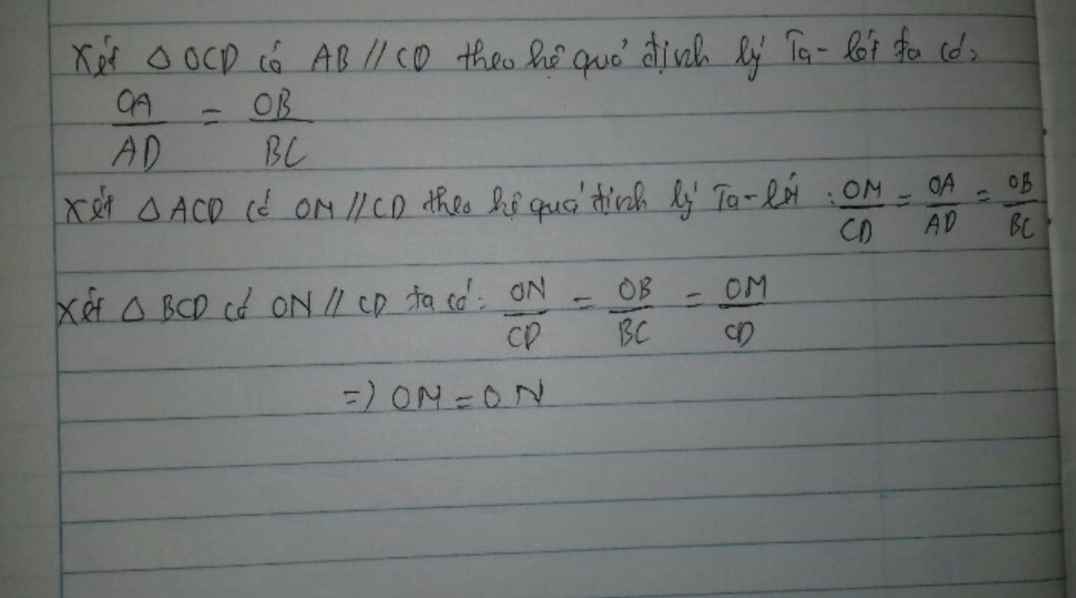 Xét △OCD có AB // CD theo hệ quả định lý Ta-lét ta có:
OA/AD = OB/BC
Xét △ACD có OM // CD theo hệ quả định lý Ta-lét: OM/CD = OA/AD = OB/BC
Xét △BCD có ON // CD ta có: ON/CD = OB/BC = OM/CD
=> OM = ON